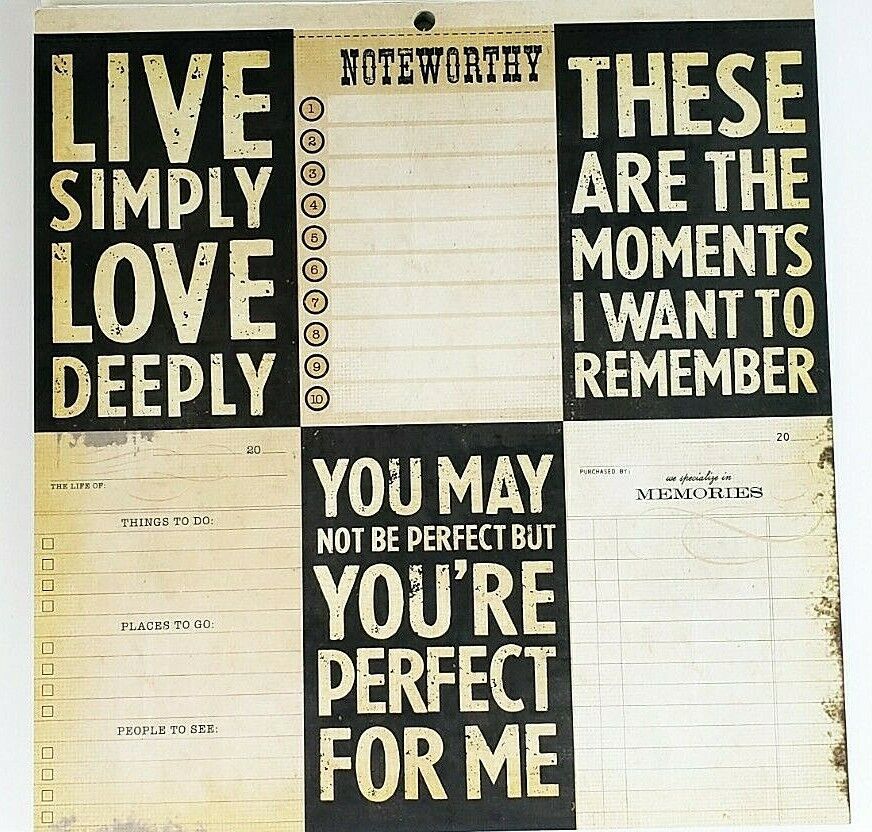 LIVE
SIMPLY
LOVE
DEEPLY
NOTEWORTHY
1
2
3
4
5
6
7
8
9
10
THESE
ARE THE
MOMENTS
I WANT TO
REMEMBER
20
THE LIFE OF:
THINGS TO DO:
PLACES TO GO:
PEOPLE TO SEE:
YOU MAY
NOT BE PERFECT BUT
YOU'RE
PERFECT
FOR ME
20
PURCHASED BY:
we specialize in
MEMORIES